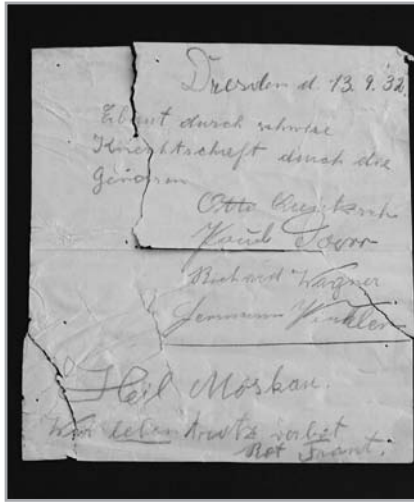 Dresden d. 13.9.32.
Erbaut durch schwere
Knechtschaft durch die
Genossen
Otto
Paul
Richard Wagner
Winkler
Heil Moskau.
Wir leben trotz verbot
Rot Front.